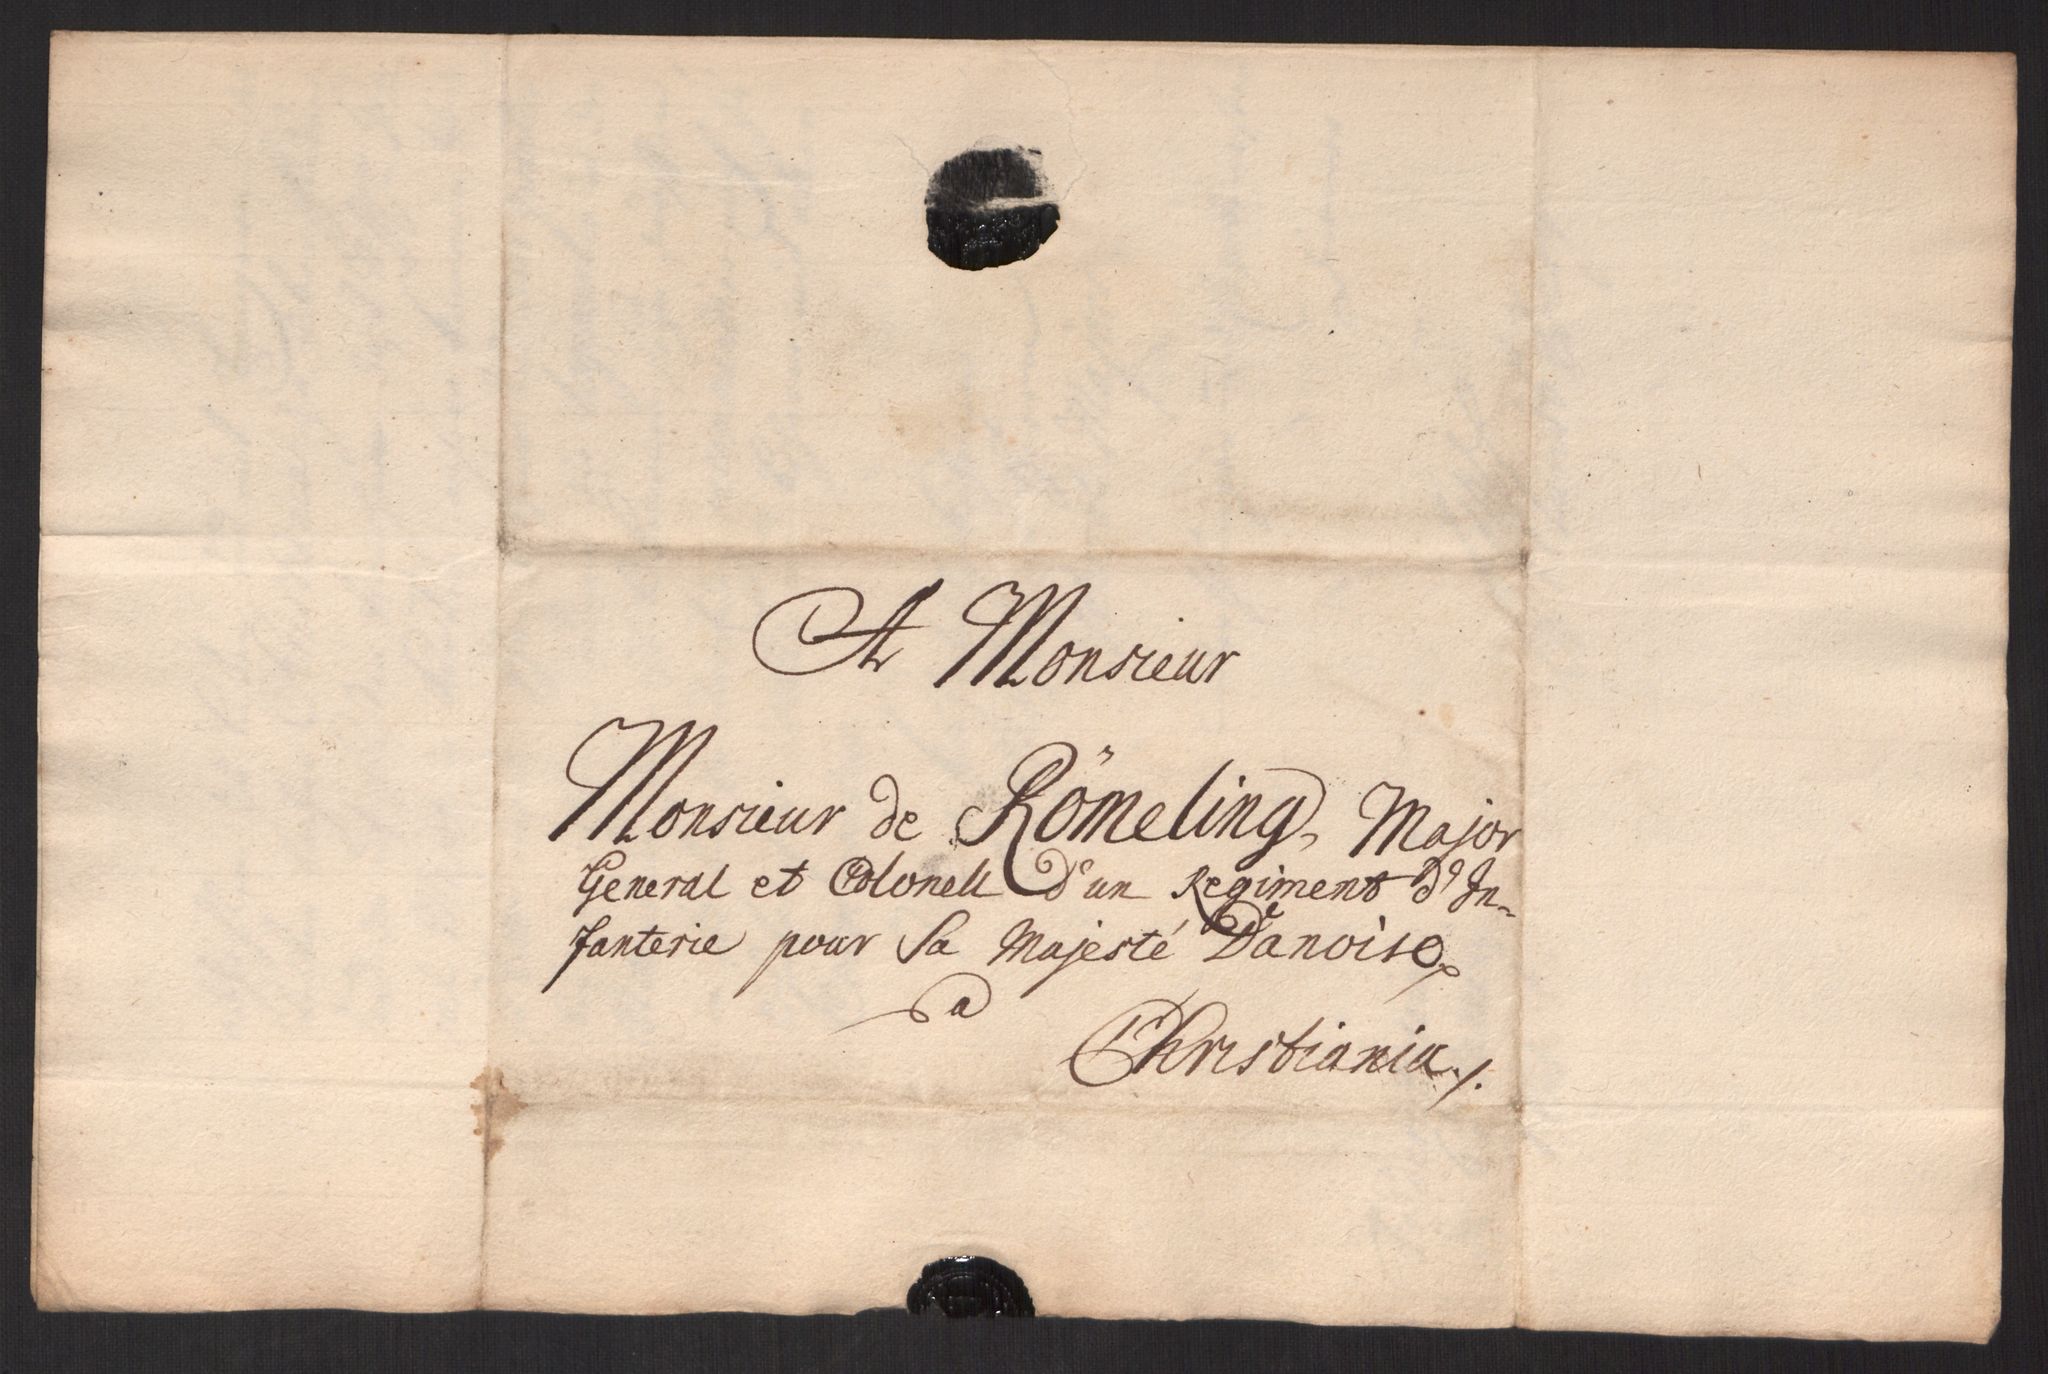 A Monsieur
Monsieur de Römeling, Major
General et Colonell d'un Regiment d'In-
fanterie pour Sa Majesté Danoise
a
Christiania ./.